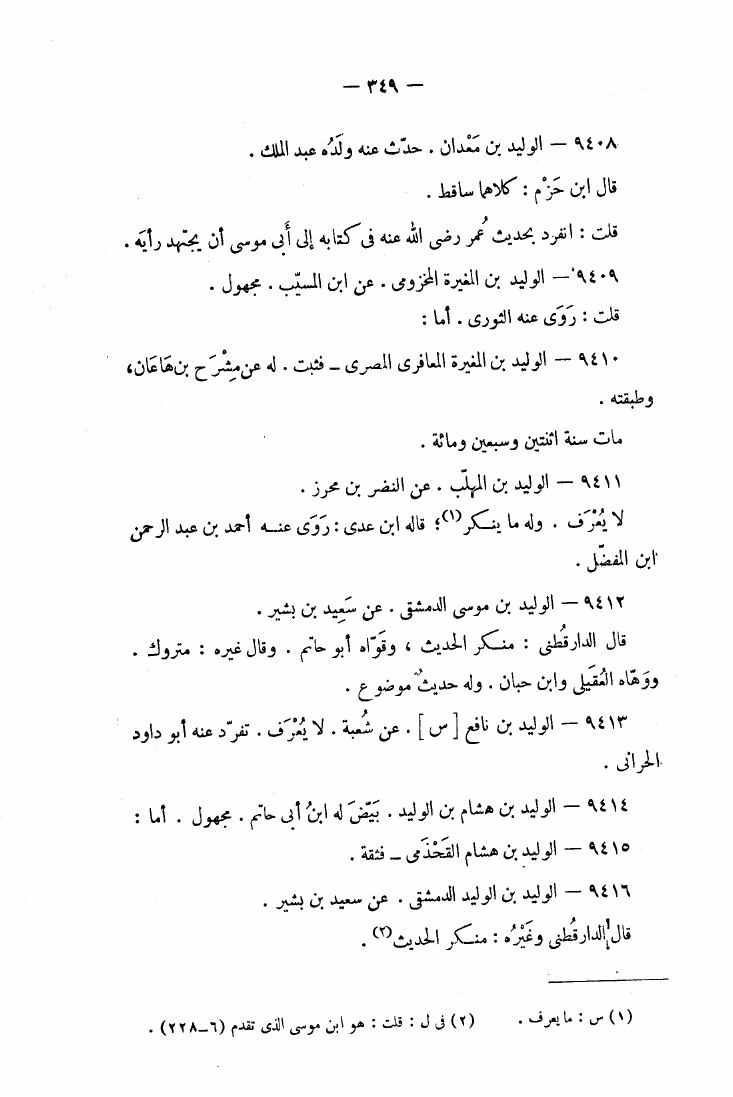 — ٣٤٩ —
٩٤٠٨ — الوليد بن مَعْدان . حدّث عنه ولَدُه عبد الملك .
قال ابن حَزْم : كلاهما ساقط .
قلت : انفرد بحديث عُمر رضى الله عنه فى كتابه إلى أَبى موسى أن يجتهد رأيَه .
٩٤٠٩ — الوليد بن المغيرة المخزومى . عن ابن المسيّب . مجهول .
قلت : رَوَى عنه الثورى . أما :
٩٤١٠ — الوليد بن المغيرة المعافرى المصرى — فثبت . له عن مِشْرَح بن هَاعَان ،
وطبقته .
مات سنة اثنتين وسبعين ومائة .
٩٤١١ — الوليد بن المهلّب . عن النضر بن محرز .
لا يُعْرَف . وله ما ينكر (١) ؛ قاله ابن عدى : رَوَى عنه أحمد بن عبد الرحمن
ابن المفضّل .
٩٤١٢ — الوليد بن موسى الدمشقى . عن سَعِيد بن بشير .
قال الدارقُطنى : منكر الحديث ، وقَوّاه أبو حاتم . وقال غيره : متروك .
ووَهّاه العُقَيلى وابن حبان . وله حديثٌ موضوع .
٩٤١٣ — الوليد بن نافع [ س ] . عن شُعبة . لا يُعْرَف . تفرّد عنه أبو داود
الحرانى .
٩٤١٤ — الوليد بن هشام بن الوليد . بَيّضَ له ابنُ أبى حاتم . مجهول . أما :
٩٤١٥ — الوليد بن هشام القَحْذَمى — فثقة .
٩٤١٦ — الوليد بن الوليد الدمشقى . عن سعيد بن بشير .
قال الدارقُطنى وغَيْرُه : منكر الحديث (٢) .
(١) س : ما يعرف . (٢) فى ل : قلت : هو ابن موسى الذى تقدم (٦—٢٢٨) .